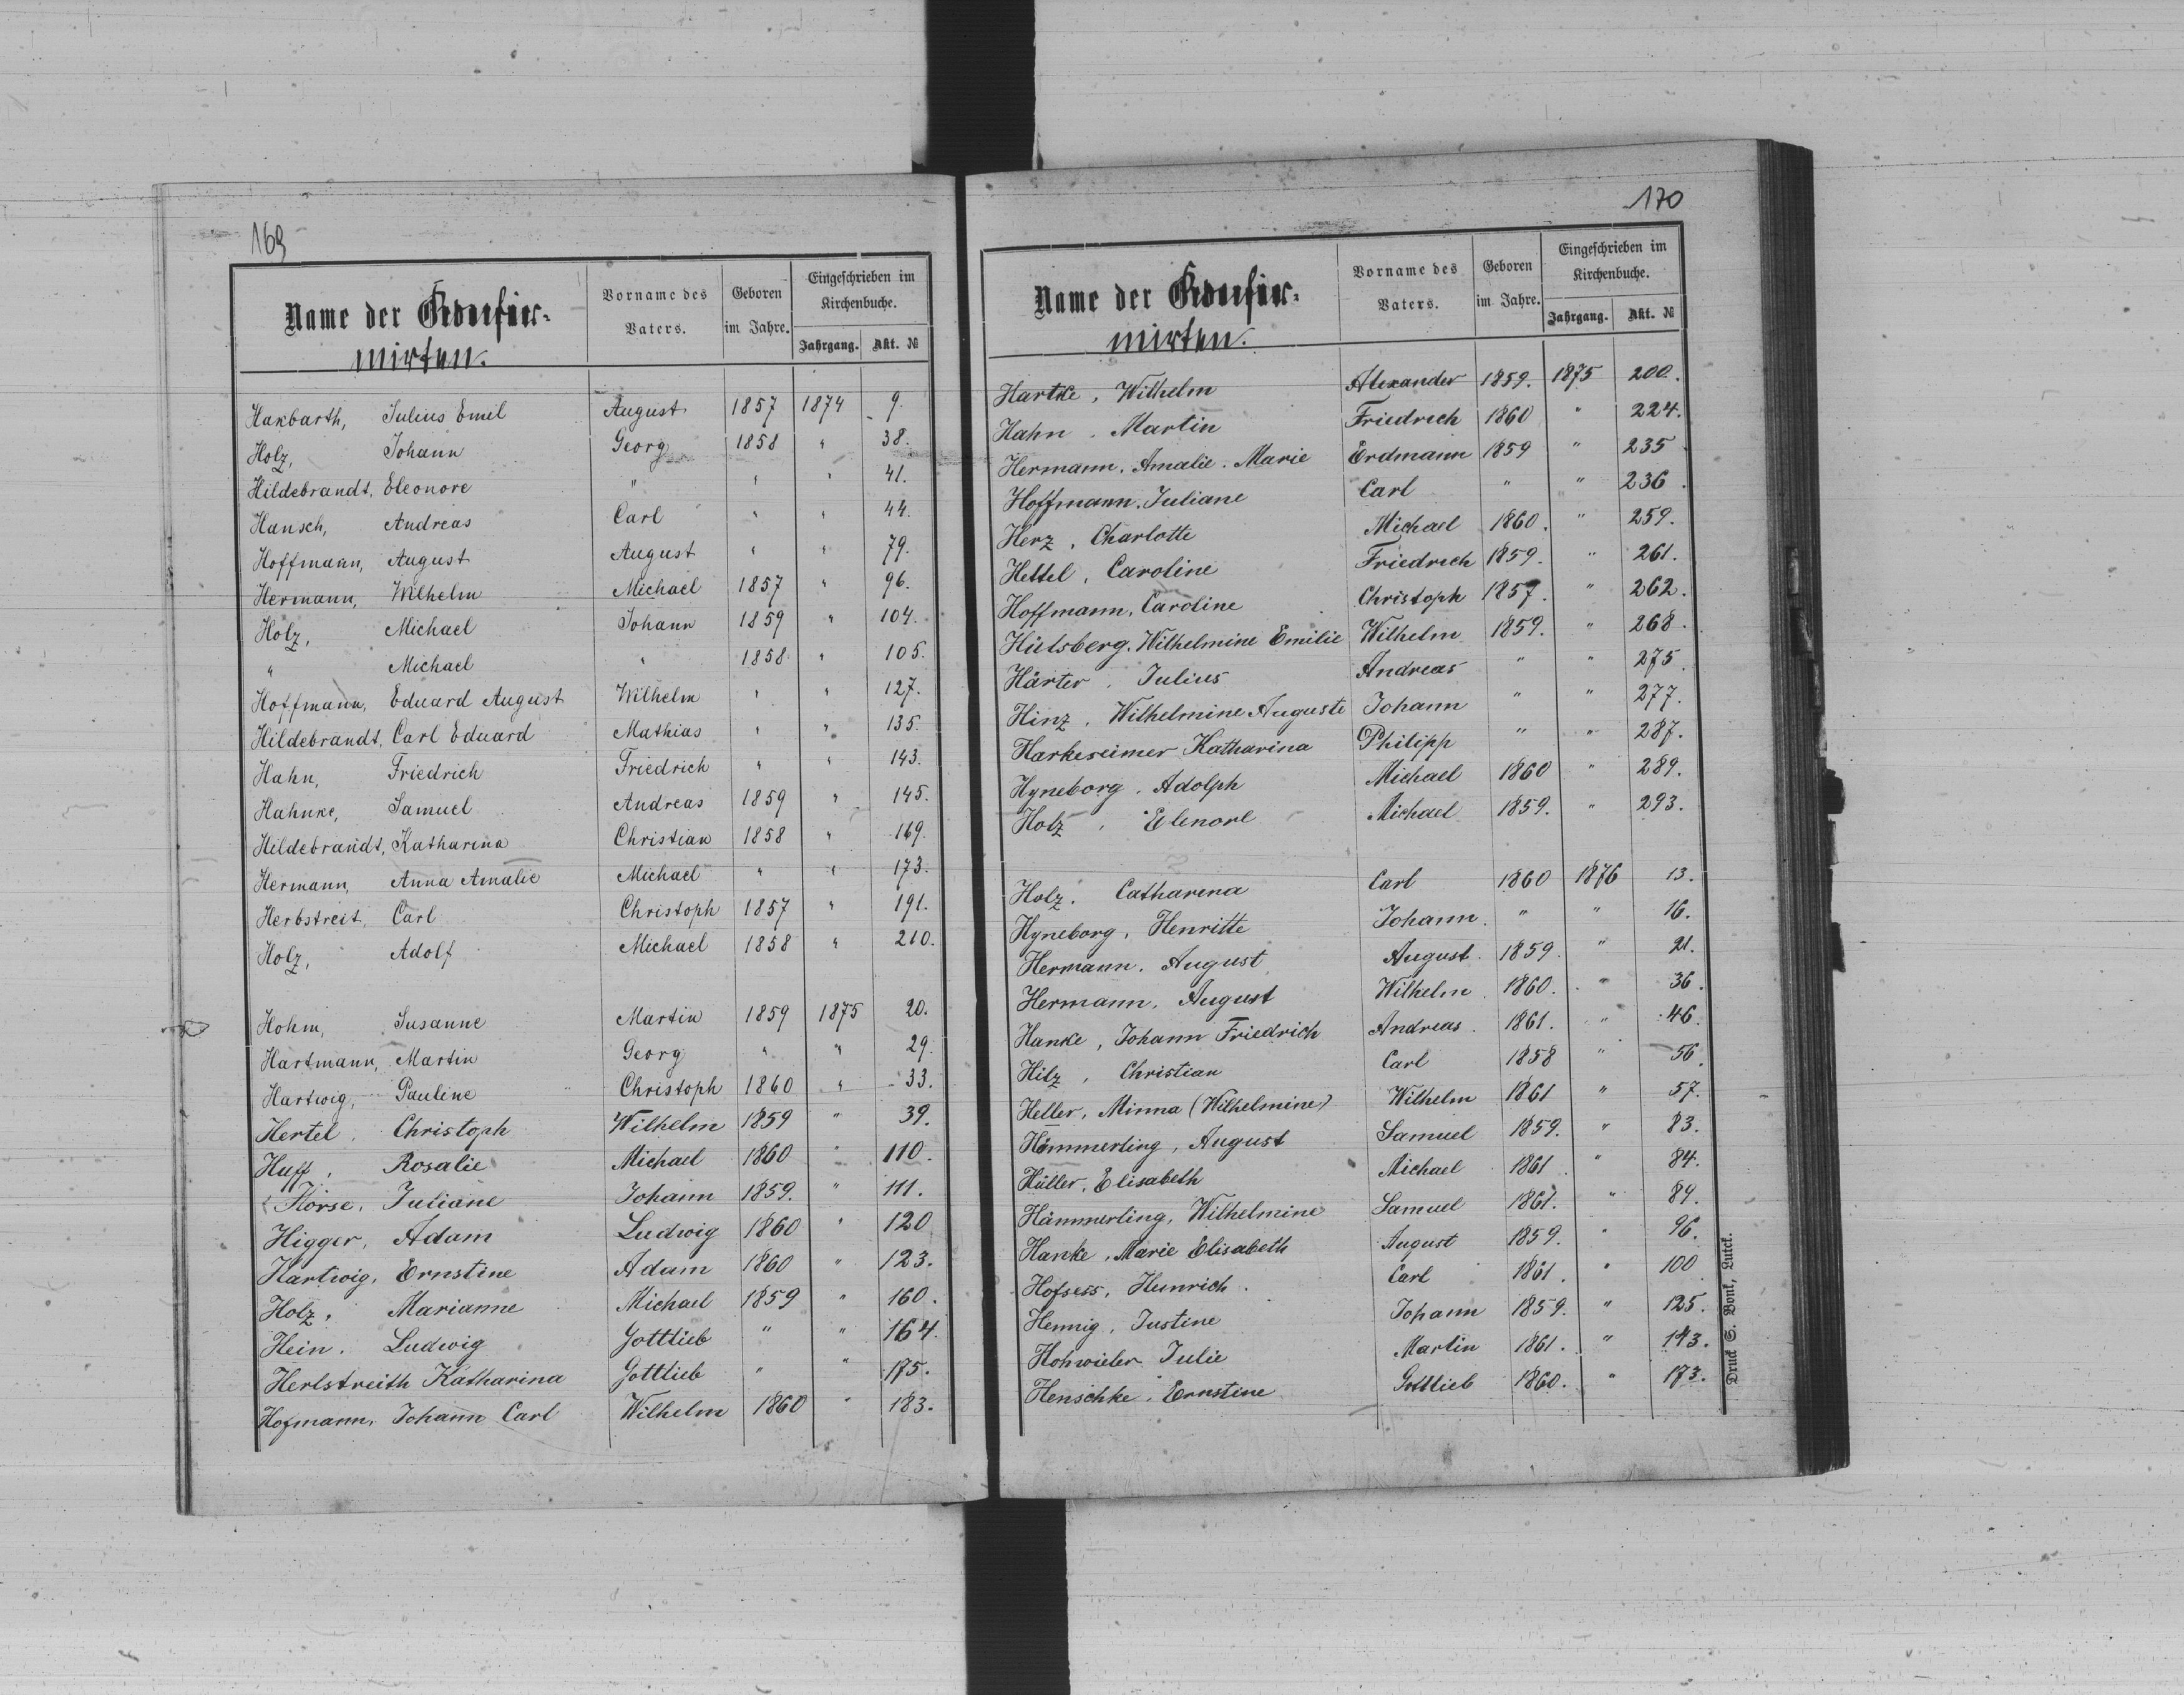 169
Name der Confir-
mirten.
Vorname des Vaters.
Geboren im Jahre.
Eingeschrieben im Kirchenbuche.
Jahrgang. Akt. №
Hakbarth, Julius Emil August 1857 1874 9.
Holz, Johann Georg 1858 " 38.
Hildebrandt, Eleonore " " " 41.
Hansch, Andreas Carl " " 44.
Hoffmann, August August " " 79.
Hermann, Wilhelm Michael 1857 " 96.
Holz, Michael Johann 1859 " 104.
" Michael " 1858 " 105.
Hoffmann, Eduard August Wilhelm " " 127.
Hildebrandt, Carl Eduard Mathias " " 135.
Hahn, Friedrich Friedrich " " 143.
Hahnke, Samuel Andreas 1859 " 145.
Hildebrandt, Katharina Christian 1858 " 169.
Hermann, Anna Amalie Michael " " 173.
Herbstreit, Carl Christoph 1857 " 191.
Holz, Adolf Michael 1858 " 210.
Hohm, Susanne Martin 1859 1875 20.
Hartmann, Martin Georg " " 29.
Hartwig, Pauline Christoph 1860 " 33.
Hertel, Christoph Wilhelm 1859 " 39.
Huff, Rosalie Michael 1860 " 110.
Horse, Juliane Johann 1859. " 111.
Higger, Adam Ludwig 1860 " 120
Hartwig, Ernstine Adam 1860 " 123.
Holz, Marianne Michael 1859 " 160.
Hein. Ludwig Gottlieb " " 164.
Herlstreith Katharina Gottlieb " " 175.
Hofmann, Johann Carl Wilhelm 1860 " 183.
170
Name der Confir-
mirten.
Vorname des Vaters.
Geboren im Jahre.
Eingeschrieben im Kirchenbuche.
Jahrgang. Akt. №
Hartke, Wilhelm Alexander 1859. 1875 200.
Hahn, Martin Friedrich 1860 " 224.
Hermann, Amalie. Marie Erdmann 1859 " 235
Hoffmann, Juliane Carl " " 236.
Herz, Charlotte Michael 1860. " 259.
Hettel, Caroline Friedrich 1859. " 261.
Hoffmann, Caroline Christoph 1857. " 262.
Hülsberg, Wilhelmine Emilie Wilhelm 1859. " 268.
Härter, Julius Andreas " " 275.
Hinz, Wilhelmine Auguste Johann " " 277.
Harkeseimer Katharina Philipp " " 287.
Hyneborg, Adolph Michael 1860 " 289.
Holz, Elenore Michael 1859. " 293.
Holz. Catharena Carl 1860 1876 13.
Hyneborg, Henritte Johann. " " 16.
Hermann. August August. 1859. " 21.
Hermann, August Wilhelm. 1860. " 36.
Hanke, Johann Friedrich Andreas. 1861. " 46.
Hilz, Christian Carl 1858 " 56.
Heller, Minna (Wilhelmine) Wilhelm 1861 " 57.
Hämmerling, August Samuel 1859. " 83.
Hüller, Elisabeth Michael 1861 " 84.
Hämmerling, Wilhelmine Samuel 1861. " 89.
Hanke, Marie Elisabeth August 1859. " 96.
Hofsess, Heinrich. Carl 1861. " 100
Hennig, Justine Johann 1859. " 125.
Hohwieler Julie Martin 1861. " 143.
Henschke, Ernstine Gottlieb 1860. " 173.
Druck S. Bonk, Lutck.